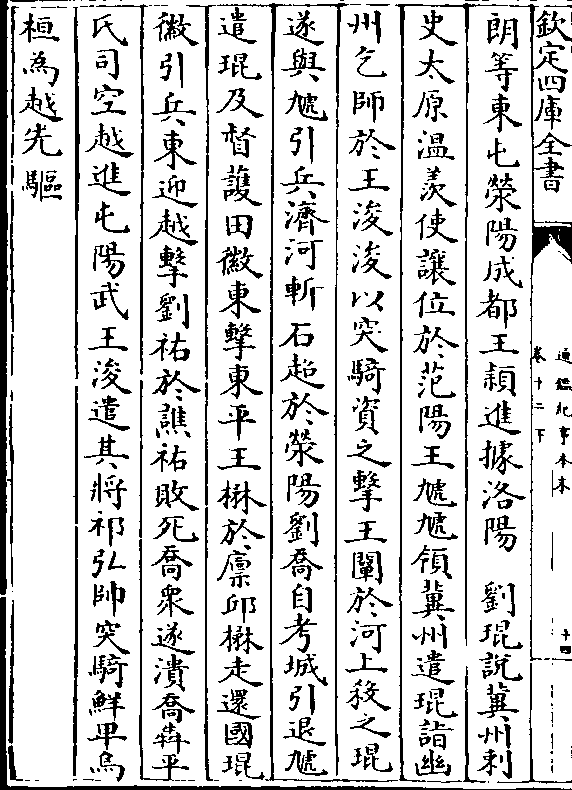 欽定四庫全書
通鑑紀事本末
卷十二下
十四
朗等東屯滎陽成都王穎進據洛陽　劉琨說冀州刺
史太原温羨使讓位於范陽王虓虓領冀州遣琨詣幽
州乞師於王浚浚以突騎資之擊王闡於河上殺之琨
遂與虓引兵濟河斬石超於滎陽劉喬自考城引退虓
遣琨及督䕶田徽東擊東平王楙於廪邱楙走還國琨
徽引兵東迎越擊劉祐於譙祐敗死喬衆遂潰喬犇平
氏司空越進屯陽武王浚遣其將祁弘帥突騎鮮卑烏
桓為越先驅